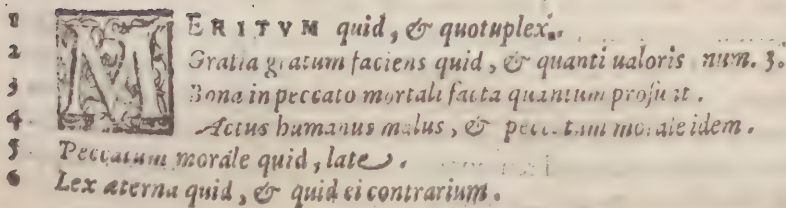 1 MERITVM quid, & quotuplex.
2 Gratia gratum faciens quid, & quanti ualoris num. 3.
3 Bona in peccato mortali facta quantum prosunt.
4 Actus humanus malus, & peccatum morale idem.
5 Peccatum morale quid, late.
6 Lex aterna quid, & quid ei contrarium.